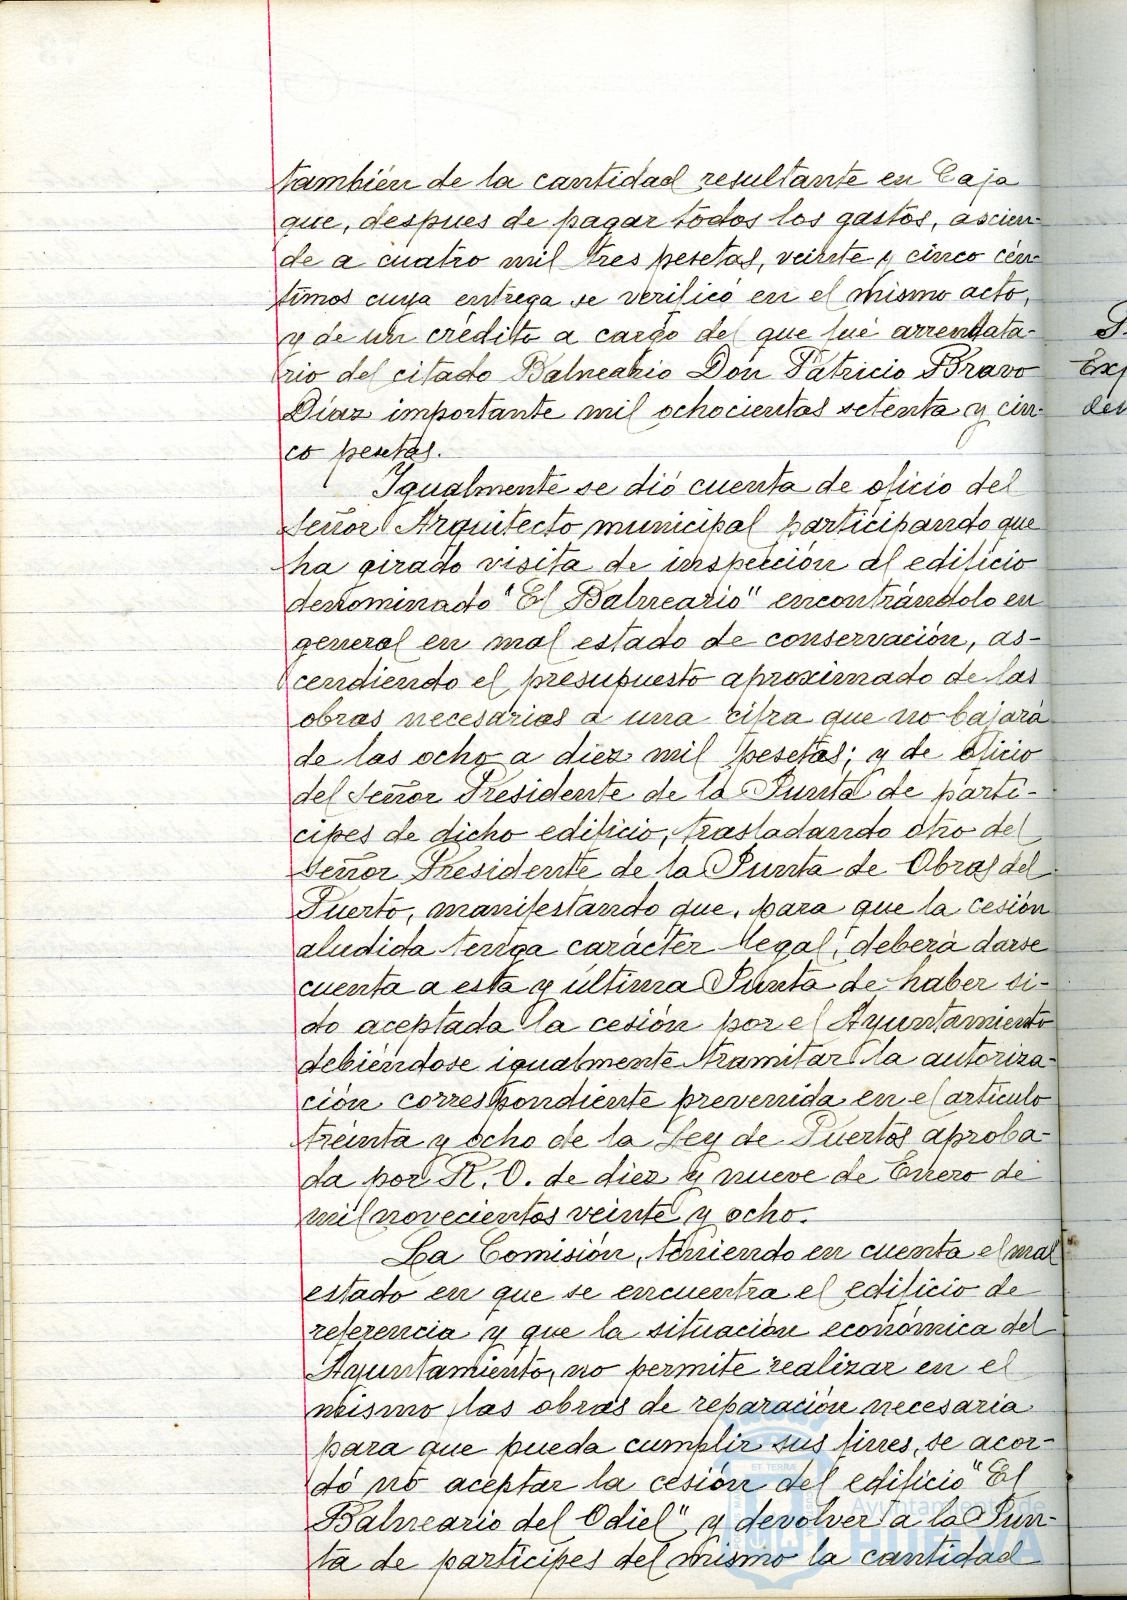 también de la cantidad resultante en Caja
que, despues de pagar todos los gastos, ascien-
de a cuatro mil tres pesetas, veinte y cinco cén-
timos cuya entrega se verificó en el mismo acto,
y de un crédito a cargo del que fué arrendata-
rio del citado Balneario Don Patricio Bravo
Díaz importante mil ochocientas setenta y cin-
co pesetas.
Igualmente se dió cuenta de oficio del
Señor Arquitecto municipal participando que
ha girado visita de inspección al edificio
denominado "El Balneario" encontrándolo en
general en mal estado de conservación, as-
cendiendo el presupuesto aproximado de las
obras necesarias a una cifra que no bajará
de las ocho a diez mil pesetas; y de oficio
del Señor Presidente de la Junta de partí-
cipes de dicho edificio, trasladando otro del
Señor Presidente de la Junta de Obras del
Puerto, manifestando que, para que la cesión
aludida tenga carácter legal, deberá darse
cuenta a esta y última Junta de haber si-
do aceptada la cesión por el Ayuntamiento
debiéndose igualmente tramitar la autoriza-
ción correspondiente prevenida en el artículo
treinta y ocho de la Ley de Puertos aproba-
da por R. O. de diez y nueve de Enero de
mil novecientos veinte y ocho.
La Comisión, teniendo en cuenta el mal
estado en que se encuentra el edificio de
referencia y que la situación económica del
Ayuntamiento, no permite realizar en el
mismo las obras de reparación necesaria
para que pueda cumplir sus fines, se acor-
dó no aceptar la cesión del edificio "El
Balneario del Odiel" y devolver a la Jun-
ta de partícipes del mismo la cantidad
Exp
der
ET TERRÆ
Ayuntamiento de
HUELVA